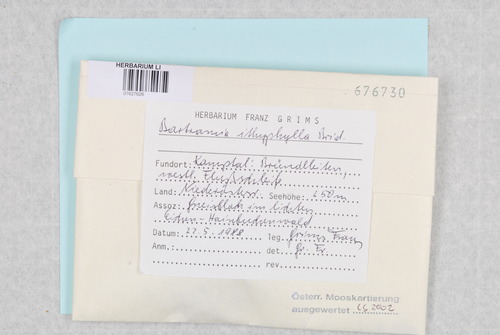 HERBARIUM LI
676730
HERBARIUM FRANZ GRIMS
Bartramia ithyphylla Brid.
Fundort: Kamptal: Bründlleiten,
westl.
Land: Niederösterr. Seehöhe: 450m
Assoz: im lichten
Eichen-Hainbuchenwald
Datum: 22.5.1988 leg. Grims Franz
Anm.: det. Gr. Fr.
rev.
Österr. Mooskartierung
ausgewertet 2002